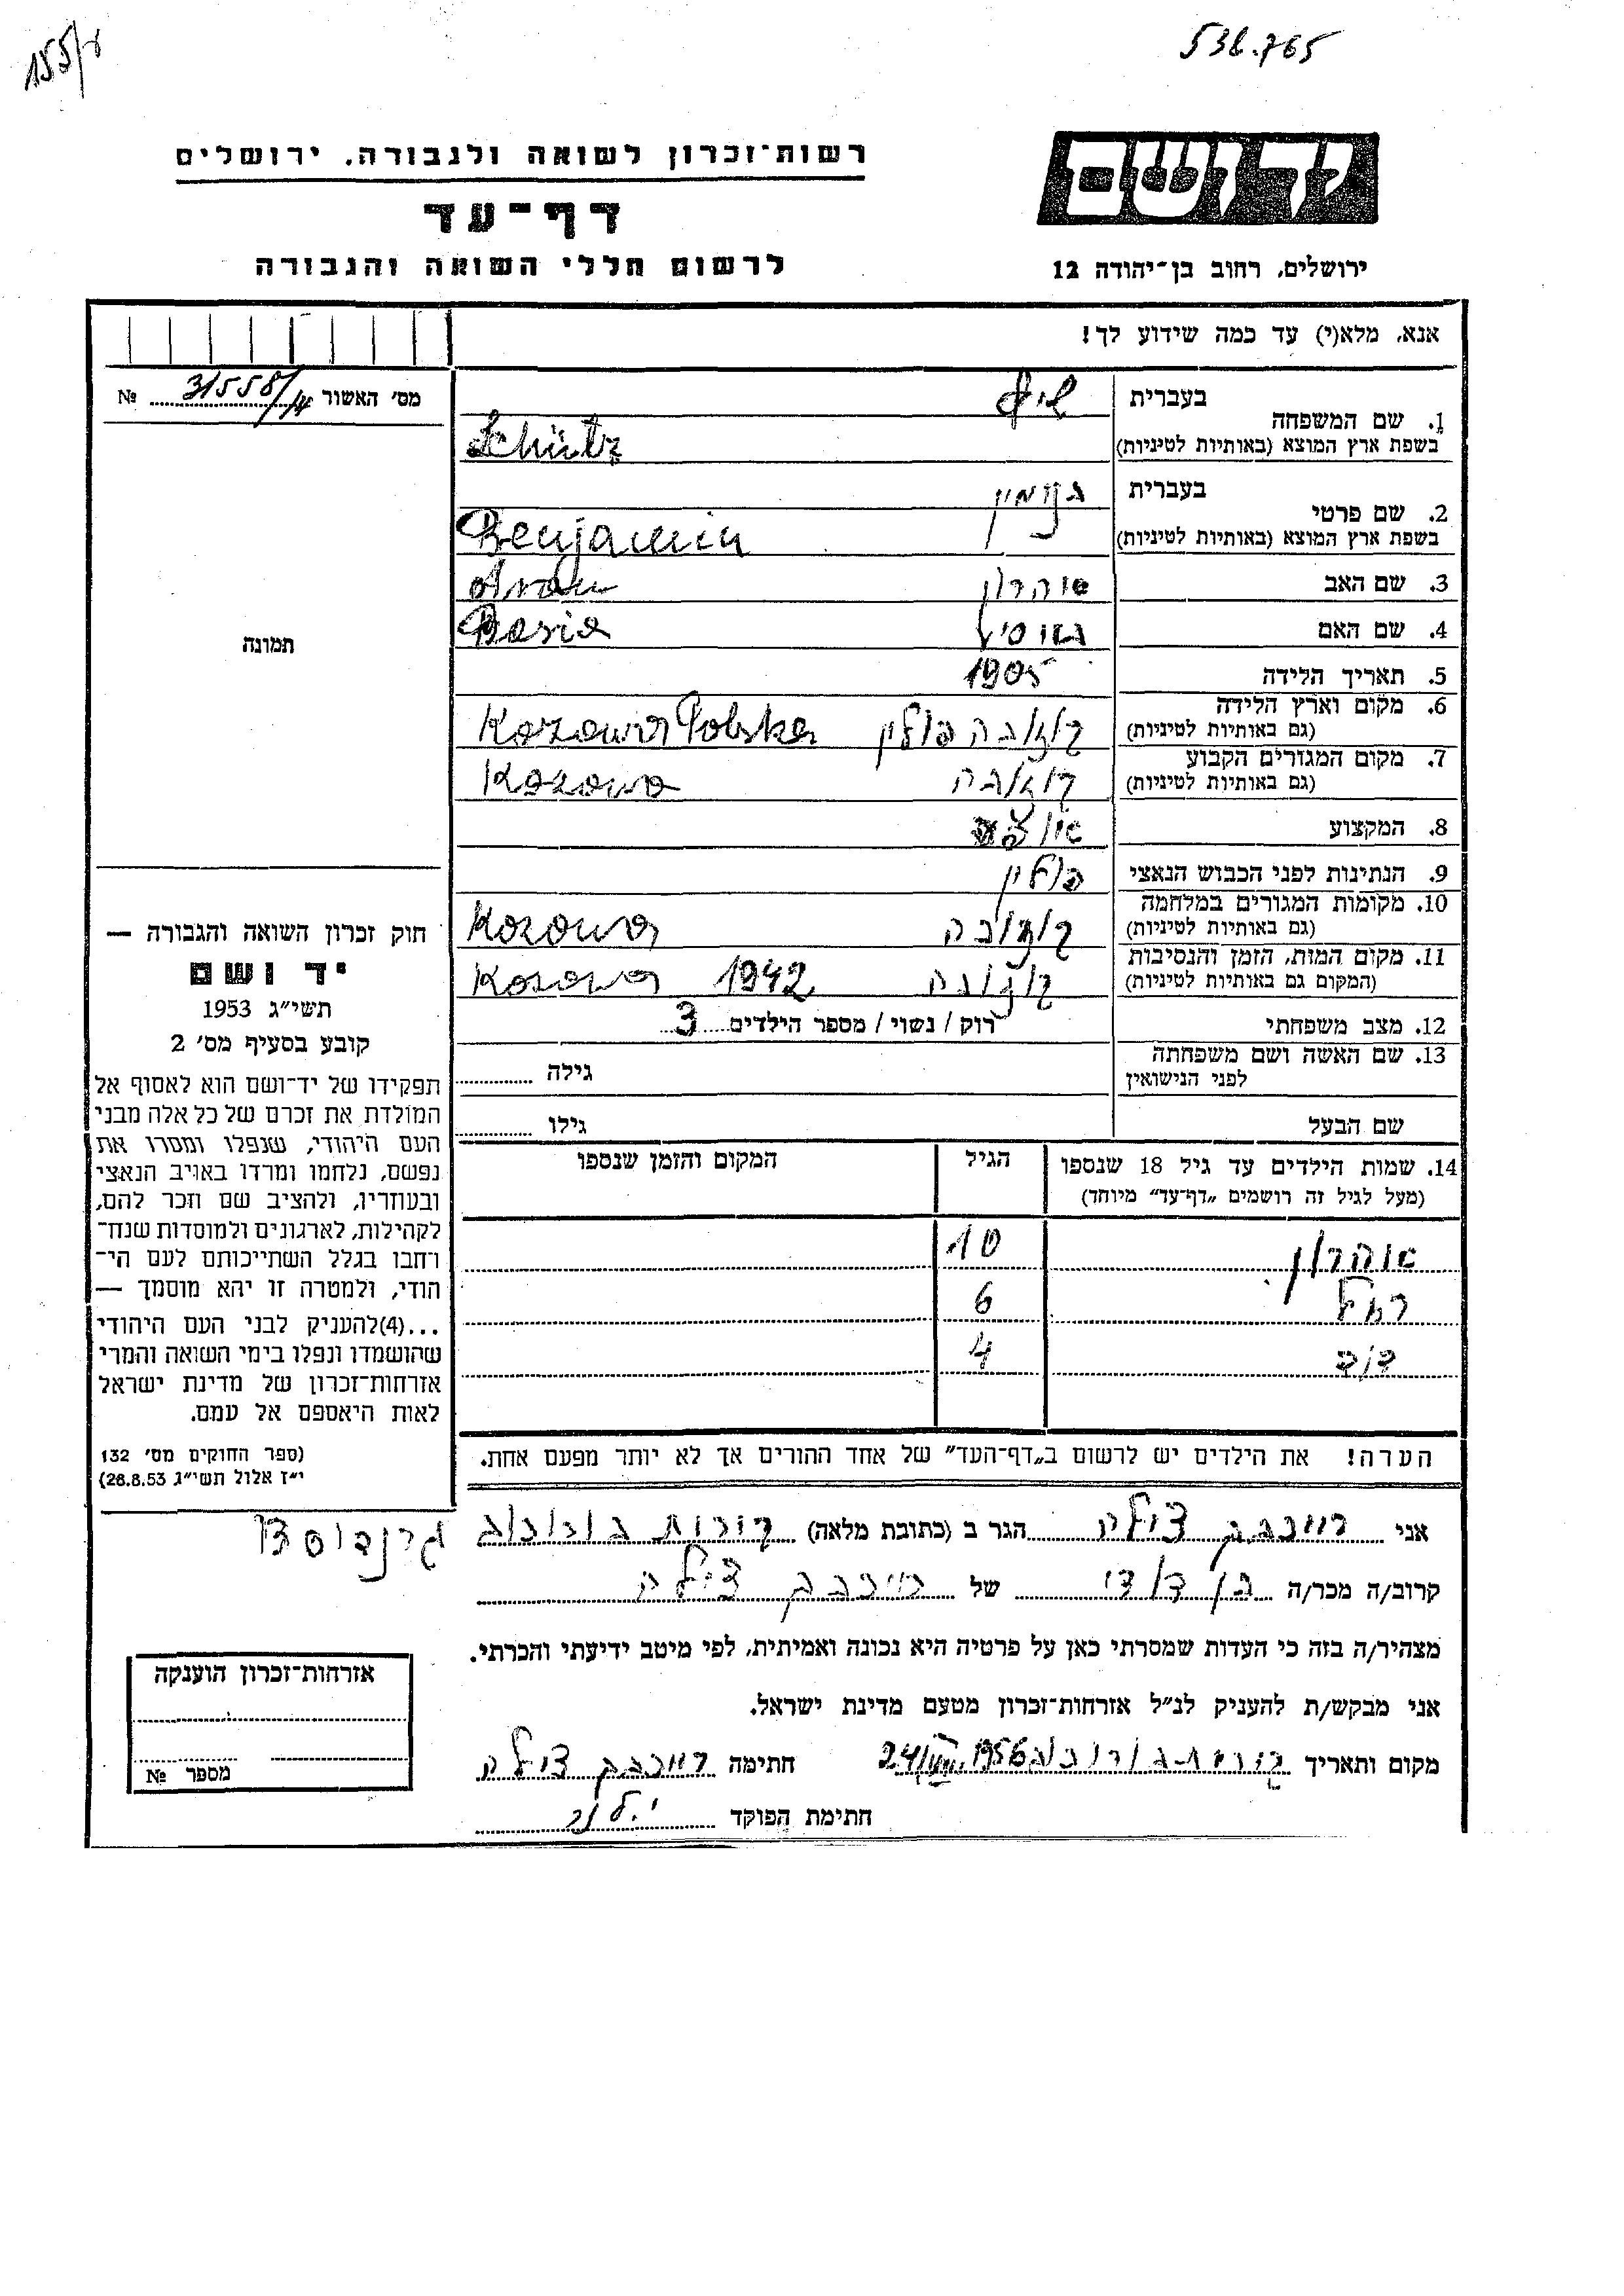 155/x
538.765
רשות־זכרון לשואה ולגבורה, ירושלים
דף־עד
לרשום חללי השואה והגבורה
יד ושם
ירושלים, רחוב בן־יהודה 12
אנא, מלא(י) עד כמה שידוע לך!
מס׳ האשור 31558/14 №
תמונה
1. שם המשפחה בעברית שיץ
בשפת ארץ המוצא (באותיות לטיניות) Schütz
2. שם פרטי בעברית בנימין
בשפת ארץ המוצא (באותיות לטיניות) Benjamin
3. שם האב אהרון Aron
4. שם האם Basia
5. תאריך הלידה 1905
6. מקום וארץ הלידה קוזובה פולין Kozowa Polska
(גם באותיות לטיניות)
7. מקום המגורים הקבוע קוזובה Kozowa
(גם באותיות לטיניות)
8. המקצוע
9. הנתינות לפני הכבוש הנאצי פולין
10. מקומות המגורים במלחמה קוזובה Kozowa
(גם באותיות לטיניות)
11. מקום המות, הזמן והנסיבות קוזובה 1942 Kozowa
(המקום גם באותיות לטיניות)
12. מצב משפחתי רוק / נשוי / מספר הילדים 3
13. שם האשה ושם משפחתה לפני הנישואין גילה
שם הבעל גילו
14. שמות הילדים עד גיל 18 שנספו הגיל המקום והזמן שנספו
(מעל לגיל זה רושמים „דף־עד״ מיוחד)
אהרון 10
רחל 6
דוב 4
הערה! את הילדים יש לרשום ב„דף־העד״ של אחד ההורים אך לא יותר מפעם אחת.
חוק זכרון השואה והגבורה —
יד ושם
תשי״ג 1953
קובע בסעיף מס׳ 2
תפקידו של יד־ושם הוא לאסוף אל
המולדת את זכרם של כל אלה מבני
העם היהודי, שנפלו ומסרו את
נפשם, נלחמו ומרדו באויב הנאצי
ובעוזריו, ולהציב שם וזכר להם,
לקהילות, לארגונים ולמוסדות שנח־
רחבו בגלל השתייכותם לעם הי־
הודי, ולמטרה זו יהא מוסמך —
...(4)להעניק לבני העם היהודי
שהושמדו ונפלו בימי השואה והמרי
אזרחות־זכרון של מדינת ישראל
לאות היאספם אל עמם.
(ספר החוקים מס׳ 132
י״ז אלול תשי״ג 28.8.53)
אני צילה הגר ב (כתובת מלאה) קורות
קרוב/ה מכר/ה בן דודי של צילה
מצהיר/ה בזה כי העדות שמסרתי כאן על פרטיה היא נכונה ואמיתית, לפי מיטב ידיעתי והכרתי.
אני מבקש/ת להעניק לנ״ל אזרחות־זכרון מטעם מדינת ישראל.
מקום ותאריך 1956 חתימה צילה
חתימת הפוקד
אזרחות־זכרון הוענקה
מספר №